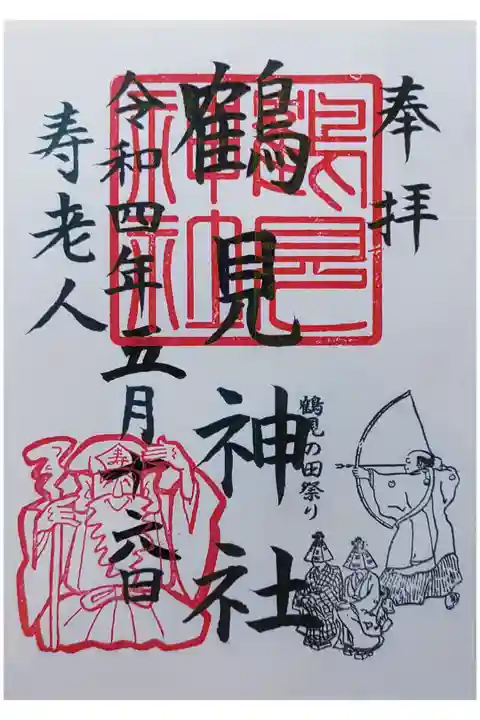 奉拝
鶴見神社
鶴見の田祭り
令和四年五月十六日
寿老人
鶴見
神社
寿